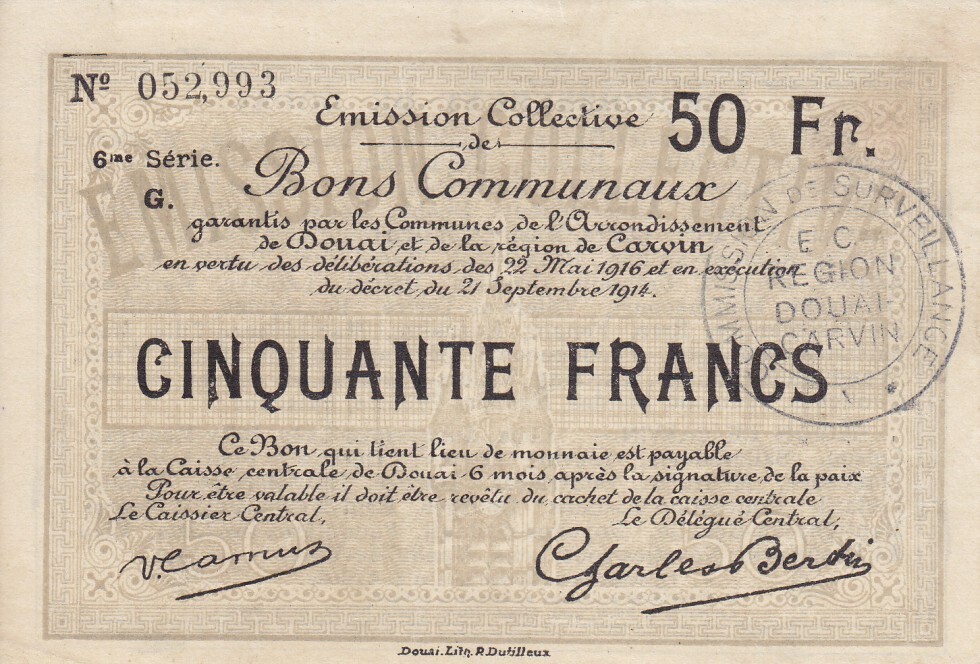 Nº 052,993
Emission Collective
de
50 Fr.
6me Série.
G.
Bons Communaux
garantis par les Communes de l'Arrondissement
de Douai et de la région de Carvin
en vertu des délibérations des 22 Mai 1916 et en exécution
du décret du 21 Septembre 1914.
COMMISSION DE SURVEILLANCE
E. C.
REGION
DOUAI-
CARVIN
CINQUANTE FRANCS
Ce Bon qui tient lieu de monnaie est payable
à la Caisse centrale de Douai 6 mois après la signature de la paix
Pour être valable il doit être revêtu du cachet de la caisse centrale
Le Caissier Central,
Le Délégué Central,
V. Camus
Charles Bertin
Douai. Lith. R. Dutilleux